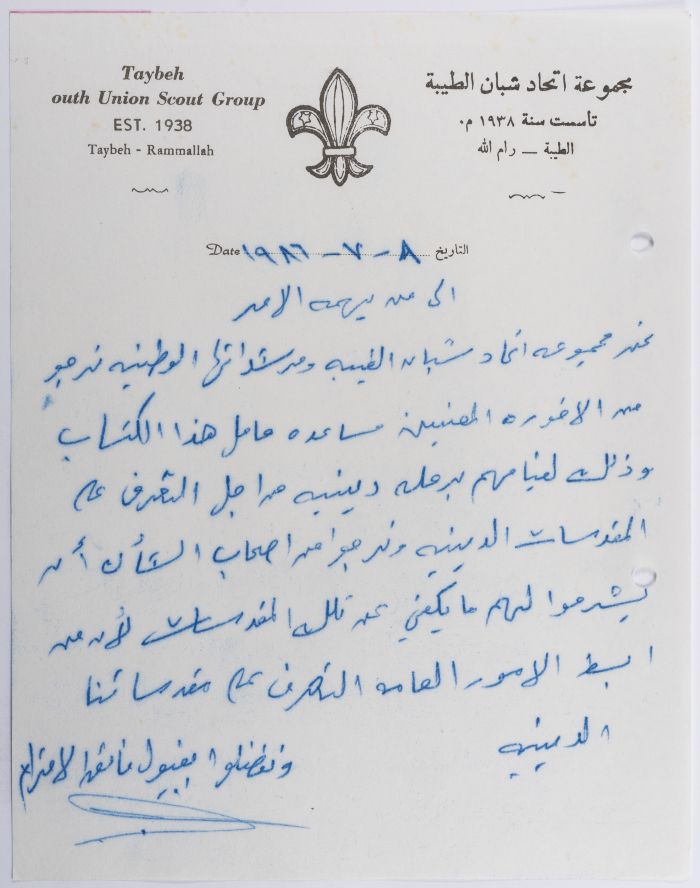 Taybeh
outh Union Scout Group
EST. 1938
Taybeh - Rammallah
مجموعة اتحاد شبان الطيبة
تاسست سنة ١٩٣٨ م.
الطيبة — رام الله
Date ١٩٨٦-٧-٨ التاريخ
الى من يهمه الامر
نحن مجموعه اتحاد شبان الطيبه ومرشداتها الوطنيه نرجو
من الاخوره المعنيين مساعده حامل هذا الكتاب
وذلك لقيامهم برحله دينيه من اجل التعرف على
المقدسات الدينيه ونرجوا من اصحاب الشأن أن
يشرحوا لهم ما يكفي عن تلك المقدسات لأن من
ابسط الامور العامه التعرف على مقدساتنا
الدينيه
وتفضلوا بقبول فائق الاحترام